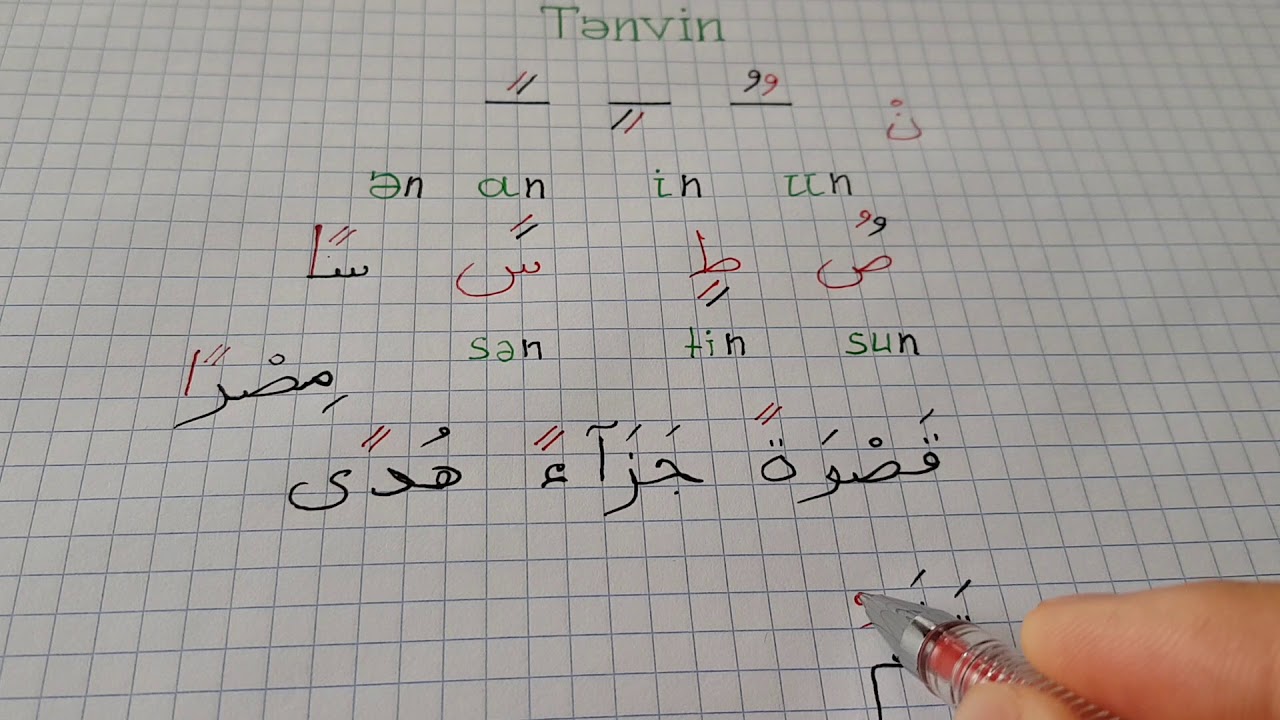 Tənvin
ـً ـٍ ـٌ نْ
ən an in un
صٌ طٍ سً سًا
sən tin sun
مِصْرًا
قَصْوَةً جَزَآءً هُدًى